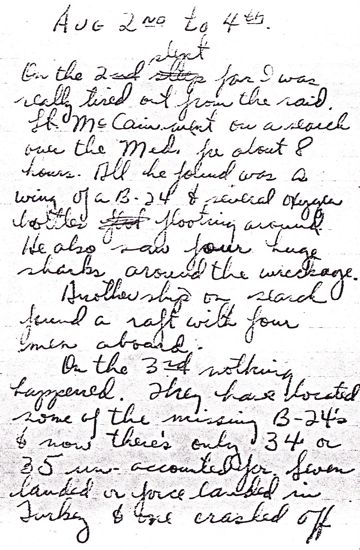 Aug 2nd to 4th.
slept
On the 2nd for I was
really tired out from the raid.
Lt. McCain went on a search
over the Med. for about 8
hours. All he found was a
wing of a B-24 & several oxygen
bottles floating around.
He also saw four huge
sharks around the wreckage.
Another ship on search
found a raft with four
men aboard.
On the 3rd nothing
happened. They have located
some of the missing B-24's
& now there's only 34 or
35 un-accounted for. Seven
landed or force landed in
Turkey & one crashed off